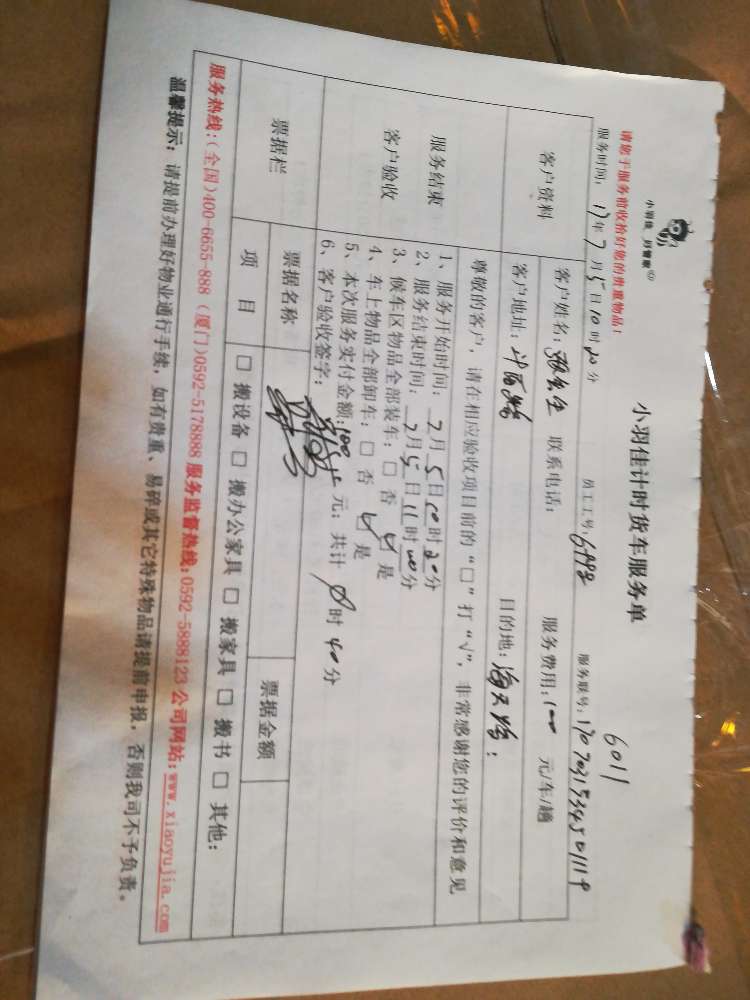 小羽佳计时货车服务单
6011
小羽佳 好管家
请您于服务前收拾好您的贵重物品！
服务时间：17年7月5日10时20分 员工工号：6998 服务联号：
客户资料
客户姓名：张先生 联系电话： 服务费用：100 元/车/趟
客户地址： 目的地：
尊敬的客户，请在相应验收项目前的“□”打“√”，非常感谢您的评价和意见
服务结束
客户验收
1、服务开始时间：7月5日10时20分
2、服务结束时间：7月5日11时00分
3、候车区物品全部装车：□ 否 ☑ 是
4、车上物品全部卸车：□ 否 ☑ 是
5、本次服务实付金额：100元；共计 0时40分
6、客户验收签字：
票据栏
票据名称 票据金额
项 目 □ 搬设备 □ 搬办公家具 □ 搬家具 □ 搬书 □ 其他：
服务热线：（全国）400-6655-888（厦门）0592-5178888 服务监督热线：0592-5888123 公司网站：www.xiaoyujia.com
温馨提示：请提前办理好物业通行手续，如有贵重、易碎或其它特殊物品请提前申报，否则我司不予负责。